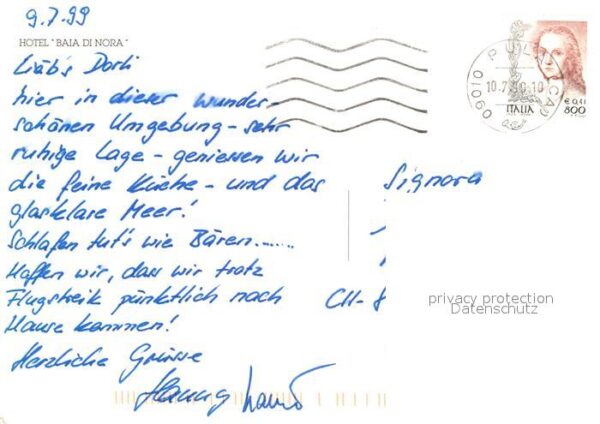 9.7.99
HOTEL "BAIA DI NORA"
Liäb's Dorli
hier in dieser wunder-
schönen Umgebung - sehr
ruhige Lage - geniessen wir
die feine Küche - und das
glasklare Meer!
Schlafen tut's wie Bären.......
Hoffen wir, dass wir trotz
Flugstreik pünktlich nach
Hause kommen!
Herzliche Grüsse
09010 PULA (CA)
ITALIA
800
Signora
CH-8
privacy protection
Datenschutz